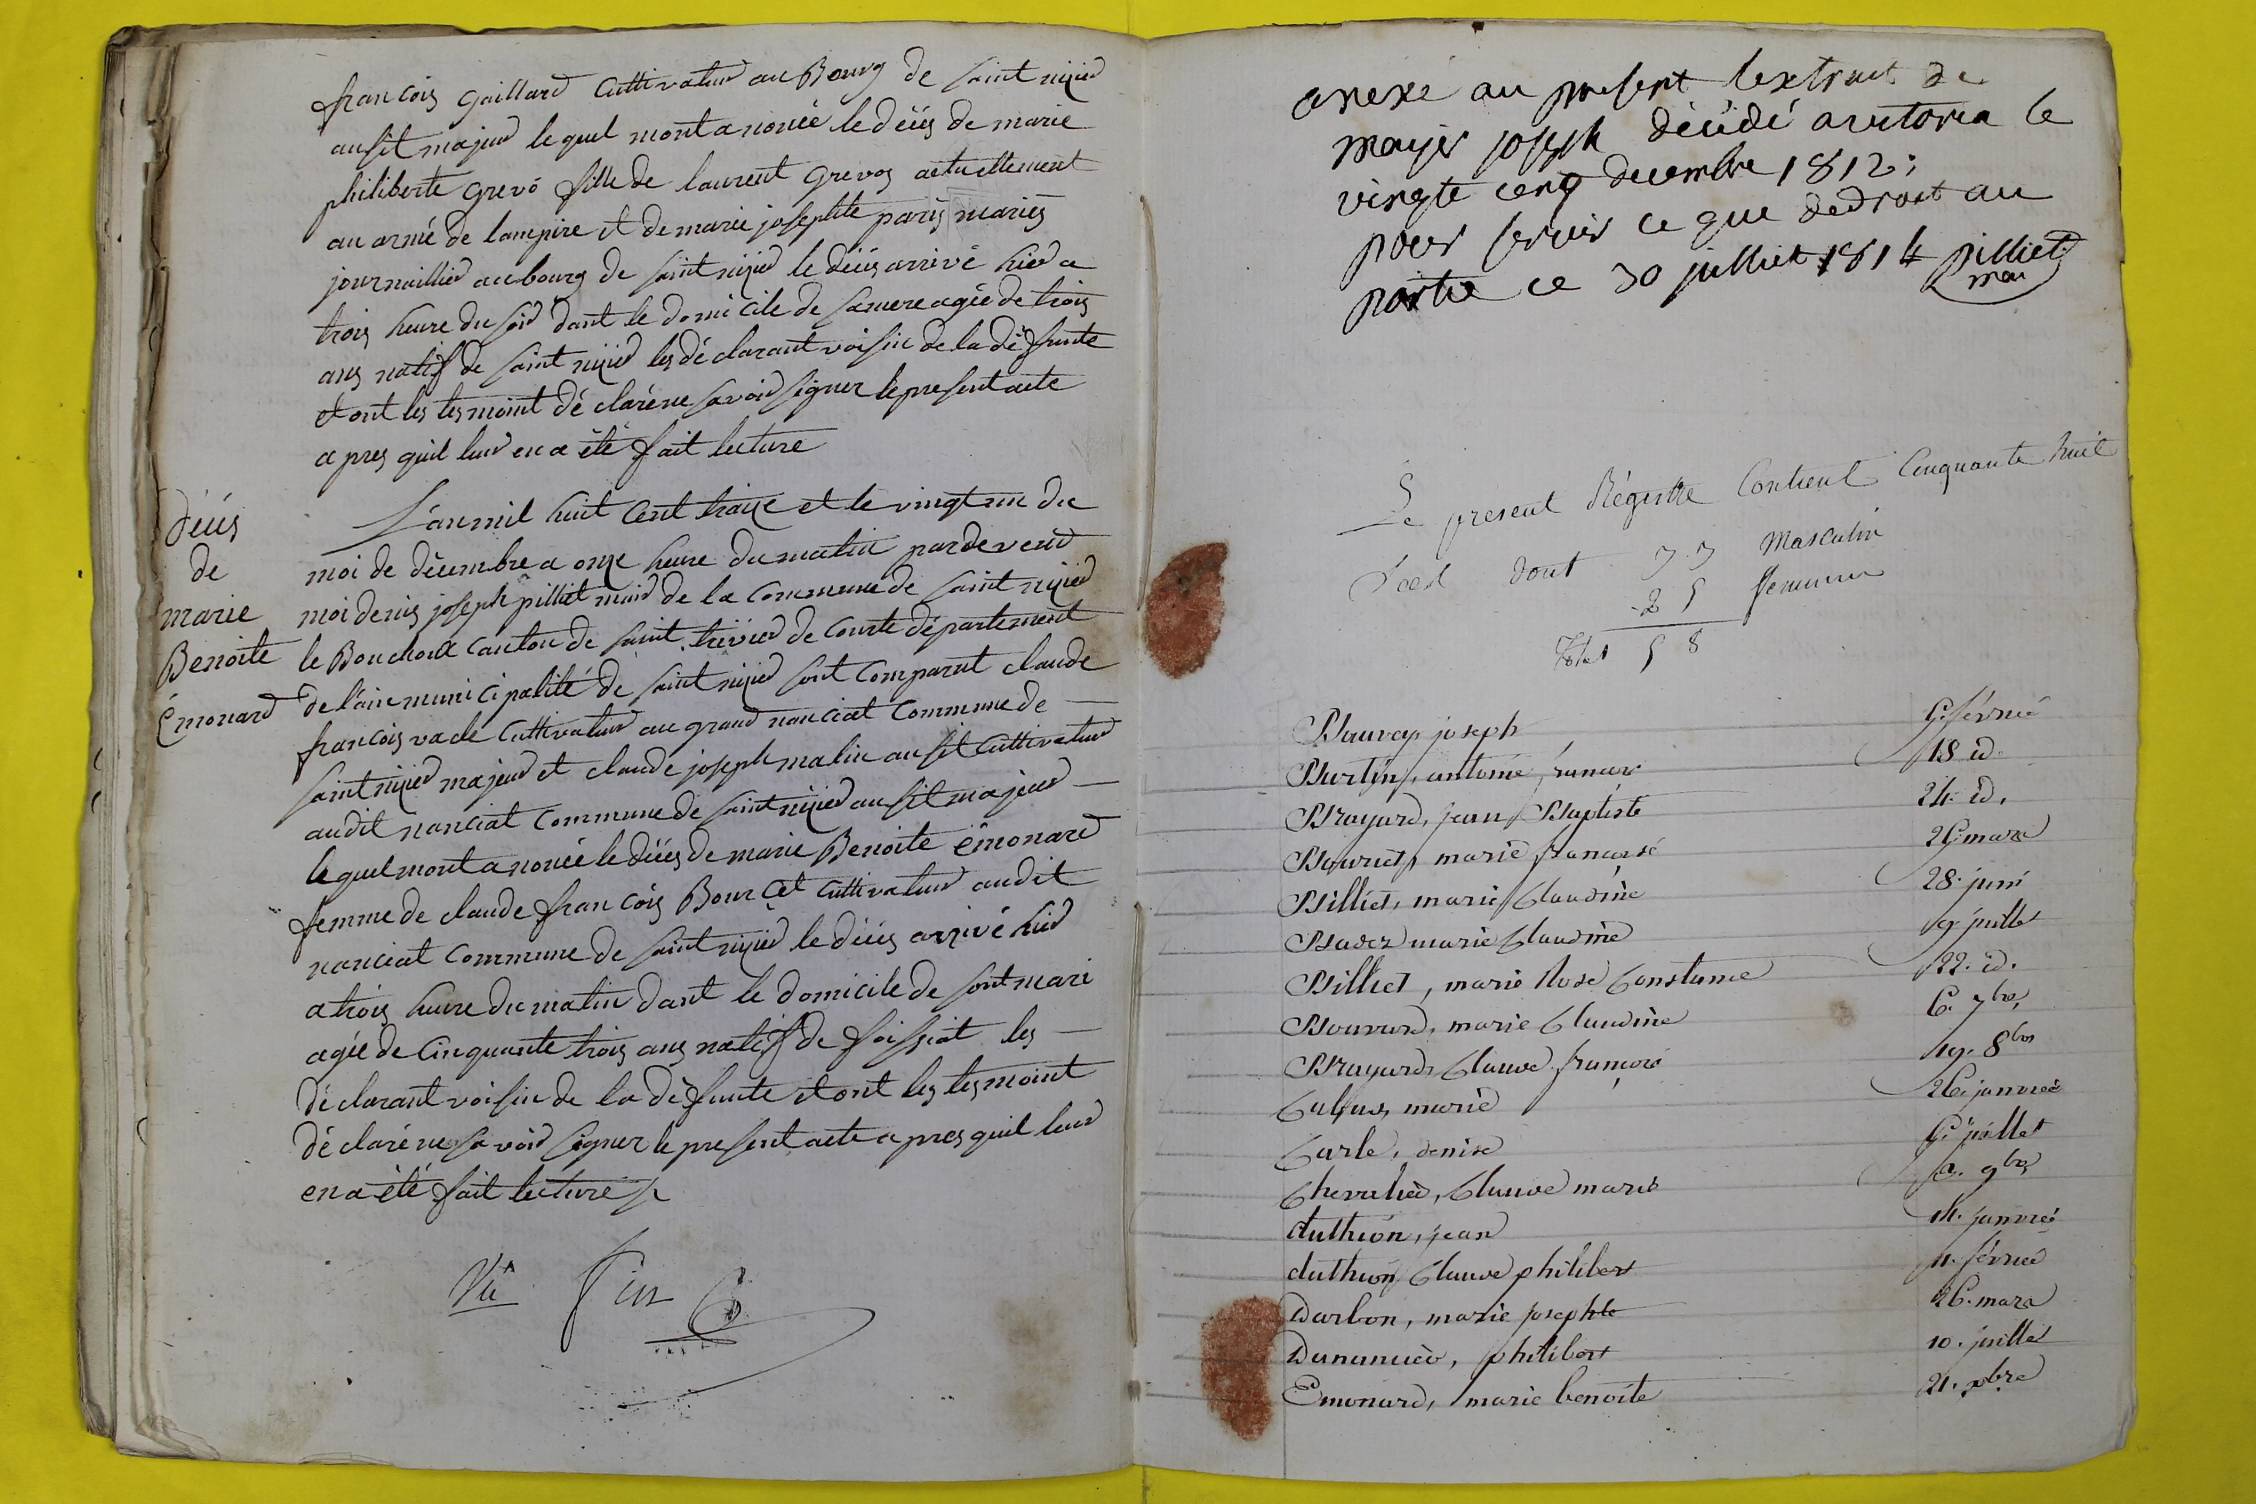 francois gaillard cultivateur au Bourg de saint nizier
ausit majeur lequel mont anoncé le déces de marie
philiberte grevo fille de laurent grevoz actuellement
au armé de lampire et de marie josephte paris mariés
journaillier au bourg de saint nizier le déces arrivé hier a
trois heure du soir dant le domicile de samere agée de trois
ans natif de saint nizier les déclarant voisin de la défunte
et ont les tesmoint déclaré ne savoir signer le present acte
apres quil leur en a été fait lecture
L'an mil huit cent traize et le vingt un du
moi de décembre a onze heure du matin pardevend
moi denis joseph pilliet maire de la commune de saint nizier
le Bouchoux canton de saint trivier de courte département
de l'ain municipalité de saint nizier sont comparut claude
francois vade cultivateur au grand nanciat commune de
saint nizier majeur et claude joseph malin ausit cultivateur
audit nanciat commune de saint nizier ausit majeur
lequel mont anoncé le déces de marie Benoite émonard
femme de claude francois Bourcet cultivateur audit
nanciat commune de saint nizier le déces arrivé hier
a trois heure du matin dant le domicile de sont mari
agée de cinquante trois ans natif de foissiat les
déclarant voisin de la défunte et ont les tesmoint
déclaré ne savoir signer le present acte apres quil leur
en a été fait lecture
déces
de
marie
Benoite
émonard
Vu
anexé au present lextrait de
mayer joseph décidé a vitoria le
vingte cenq decembre 1812;
pour servir ce que dedroit au
partie ce 30 juilliet 1814 pilliet
mai
Le present Régistre Contient Cinquante huit
Décès dont 33 Masculin
25 feminin
Total 58
joseph 5. février
Burtin, antoine francois 18 id.
Brayard, jean Baptiste 24. id.
marie francoise 25 mars
Billiet, marie Claudine 28. juin
marie Claudine 9. juillet
Billiet, marie Rose Constance 22. id.
Bouvard, marie Claudine 6. 7bre
Brayard, Claude francois 19. 8bre
marie 26. janvier
Carle, denise juillet
Chevalier, Claude marie 9bre
duthion, jean 14. janvier
duthion, Claude philibert 11. février
Darbon, marie josephte 26. mars
philibert 10. juillet
Emonard, marie benoite 21. xbre